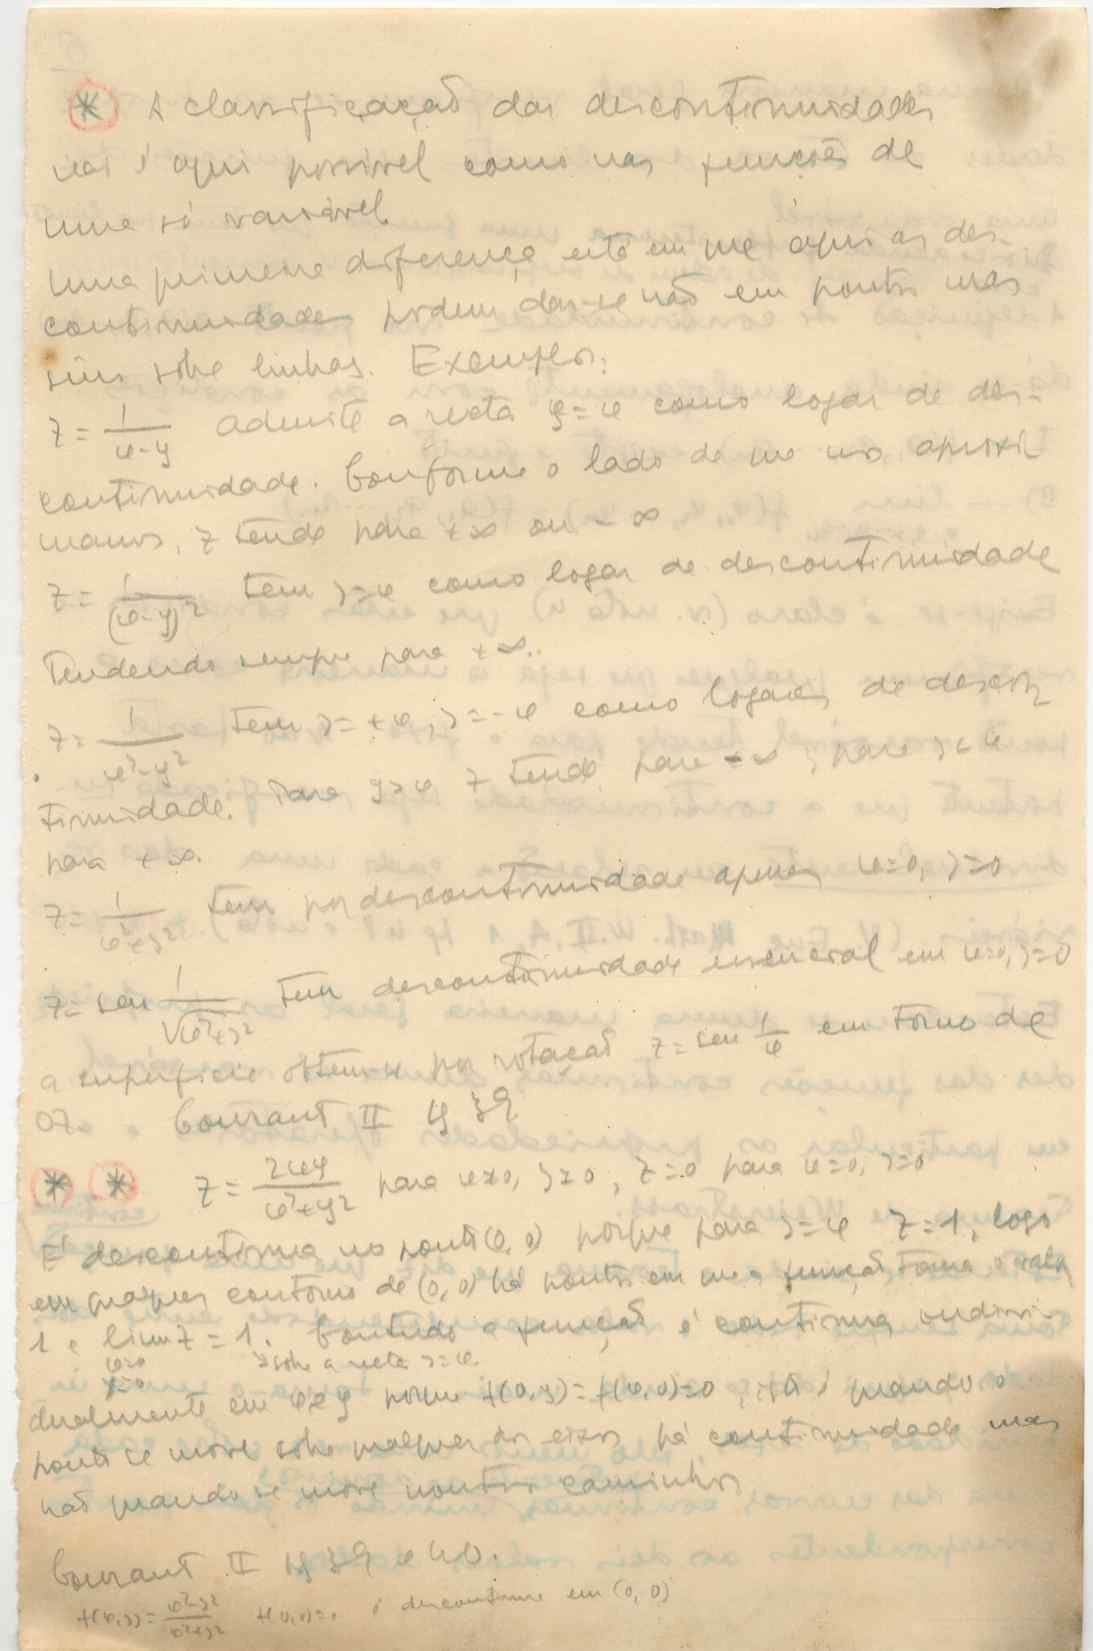 * A classificação das descontinuidades
não é aqui possível como nas funções de
uma só variável.
Uma primeira diferença está em que aqui as des-
continuidades podem dar-se não em pontos mas
sim sobre linhas. Exemplos:
z = 1/(x-y) admite a recta y=x como logar de des-
continuidade. Conforme o lado de que nos aproxi
mamos, z tende para +∞ ou -∞
z = 1/(x-y)² tem y=x como logar de descontinuidade
tendendo sempre para +∞..
z = 1/(x²-y²) tem y=+x, y=-x como logares de descon
tinuidade. Para y>x z tende para -∞; para y<x
para +∞.
z = 1/(x²+y²) tem por descontinuidade apenas x=0, y=0
z = sen 1/√(x²+y²) tem descontinuidade essencial em x=0, y=0
a superficie obtem-se por rotação z = sen 1/x em torno de
OZ Courant II pg 39
* * z = 2xy/(x²+y²) para x≠0, y≠0; z=0 para x=0, y=0
É descontinua no ponto (0,0) porque para y=x z=1, logo
em qualquer contorno de (0,0) há pontos em que a função toma o valor
1 e lim z = 1. Contudo a função é continua indivi-
x=0 y=0 z sobre a recta y=x.
dualmente em x e y porque f(0,y)=f(x,0)=0, isto é quando o
ponto se move sobre qualquer dos eixos há continuidade mas
não quando se move noutros caminhos
Courant II pg 39 e 40.
f(x,y) = (x²-y²)/(x²+y²) f(0,0)=0 é descontinua em (0,0)